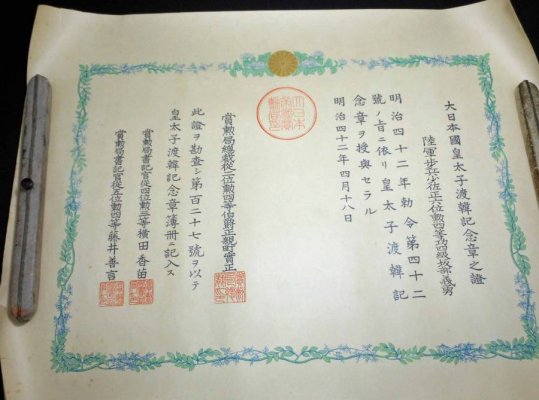 大日本國皇太子渡韓記念章之證
陸軍步兵少佐正六位勲四等功四級坂部義男
明治四十二年勅令第四十二
號ノ旨ニ依リ皇太子渡韓記
念章ヲ授與セラル
明治四十二年四月十八日
賞勲局總裁從二位勲四等伯爵正親町實正
此證ヲ勘査シ第百二十七號ヲ以テ
皇太子渡韓記念章簿冊ニ記入ス
賞勲局書記官從四位勲三等横田香苗
賞勲局書記官從五位勲四等藤井善言